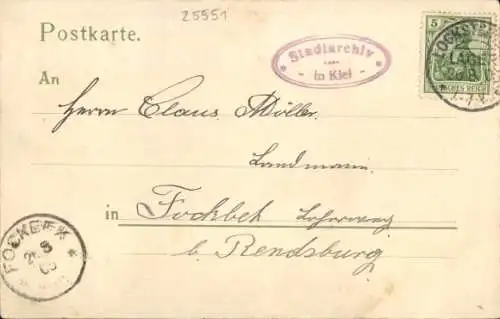 25551
Postkarte.
Stadtarchiv
- in Kiel -
5
LOCKSTEDT
LAGER
DEUTSCHES REICH
An
Herrn Claus Möller.
Landmann.
in Fockbek
b. Rendsburg
FOCKBEK